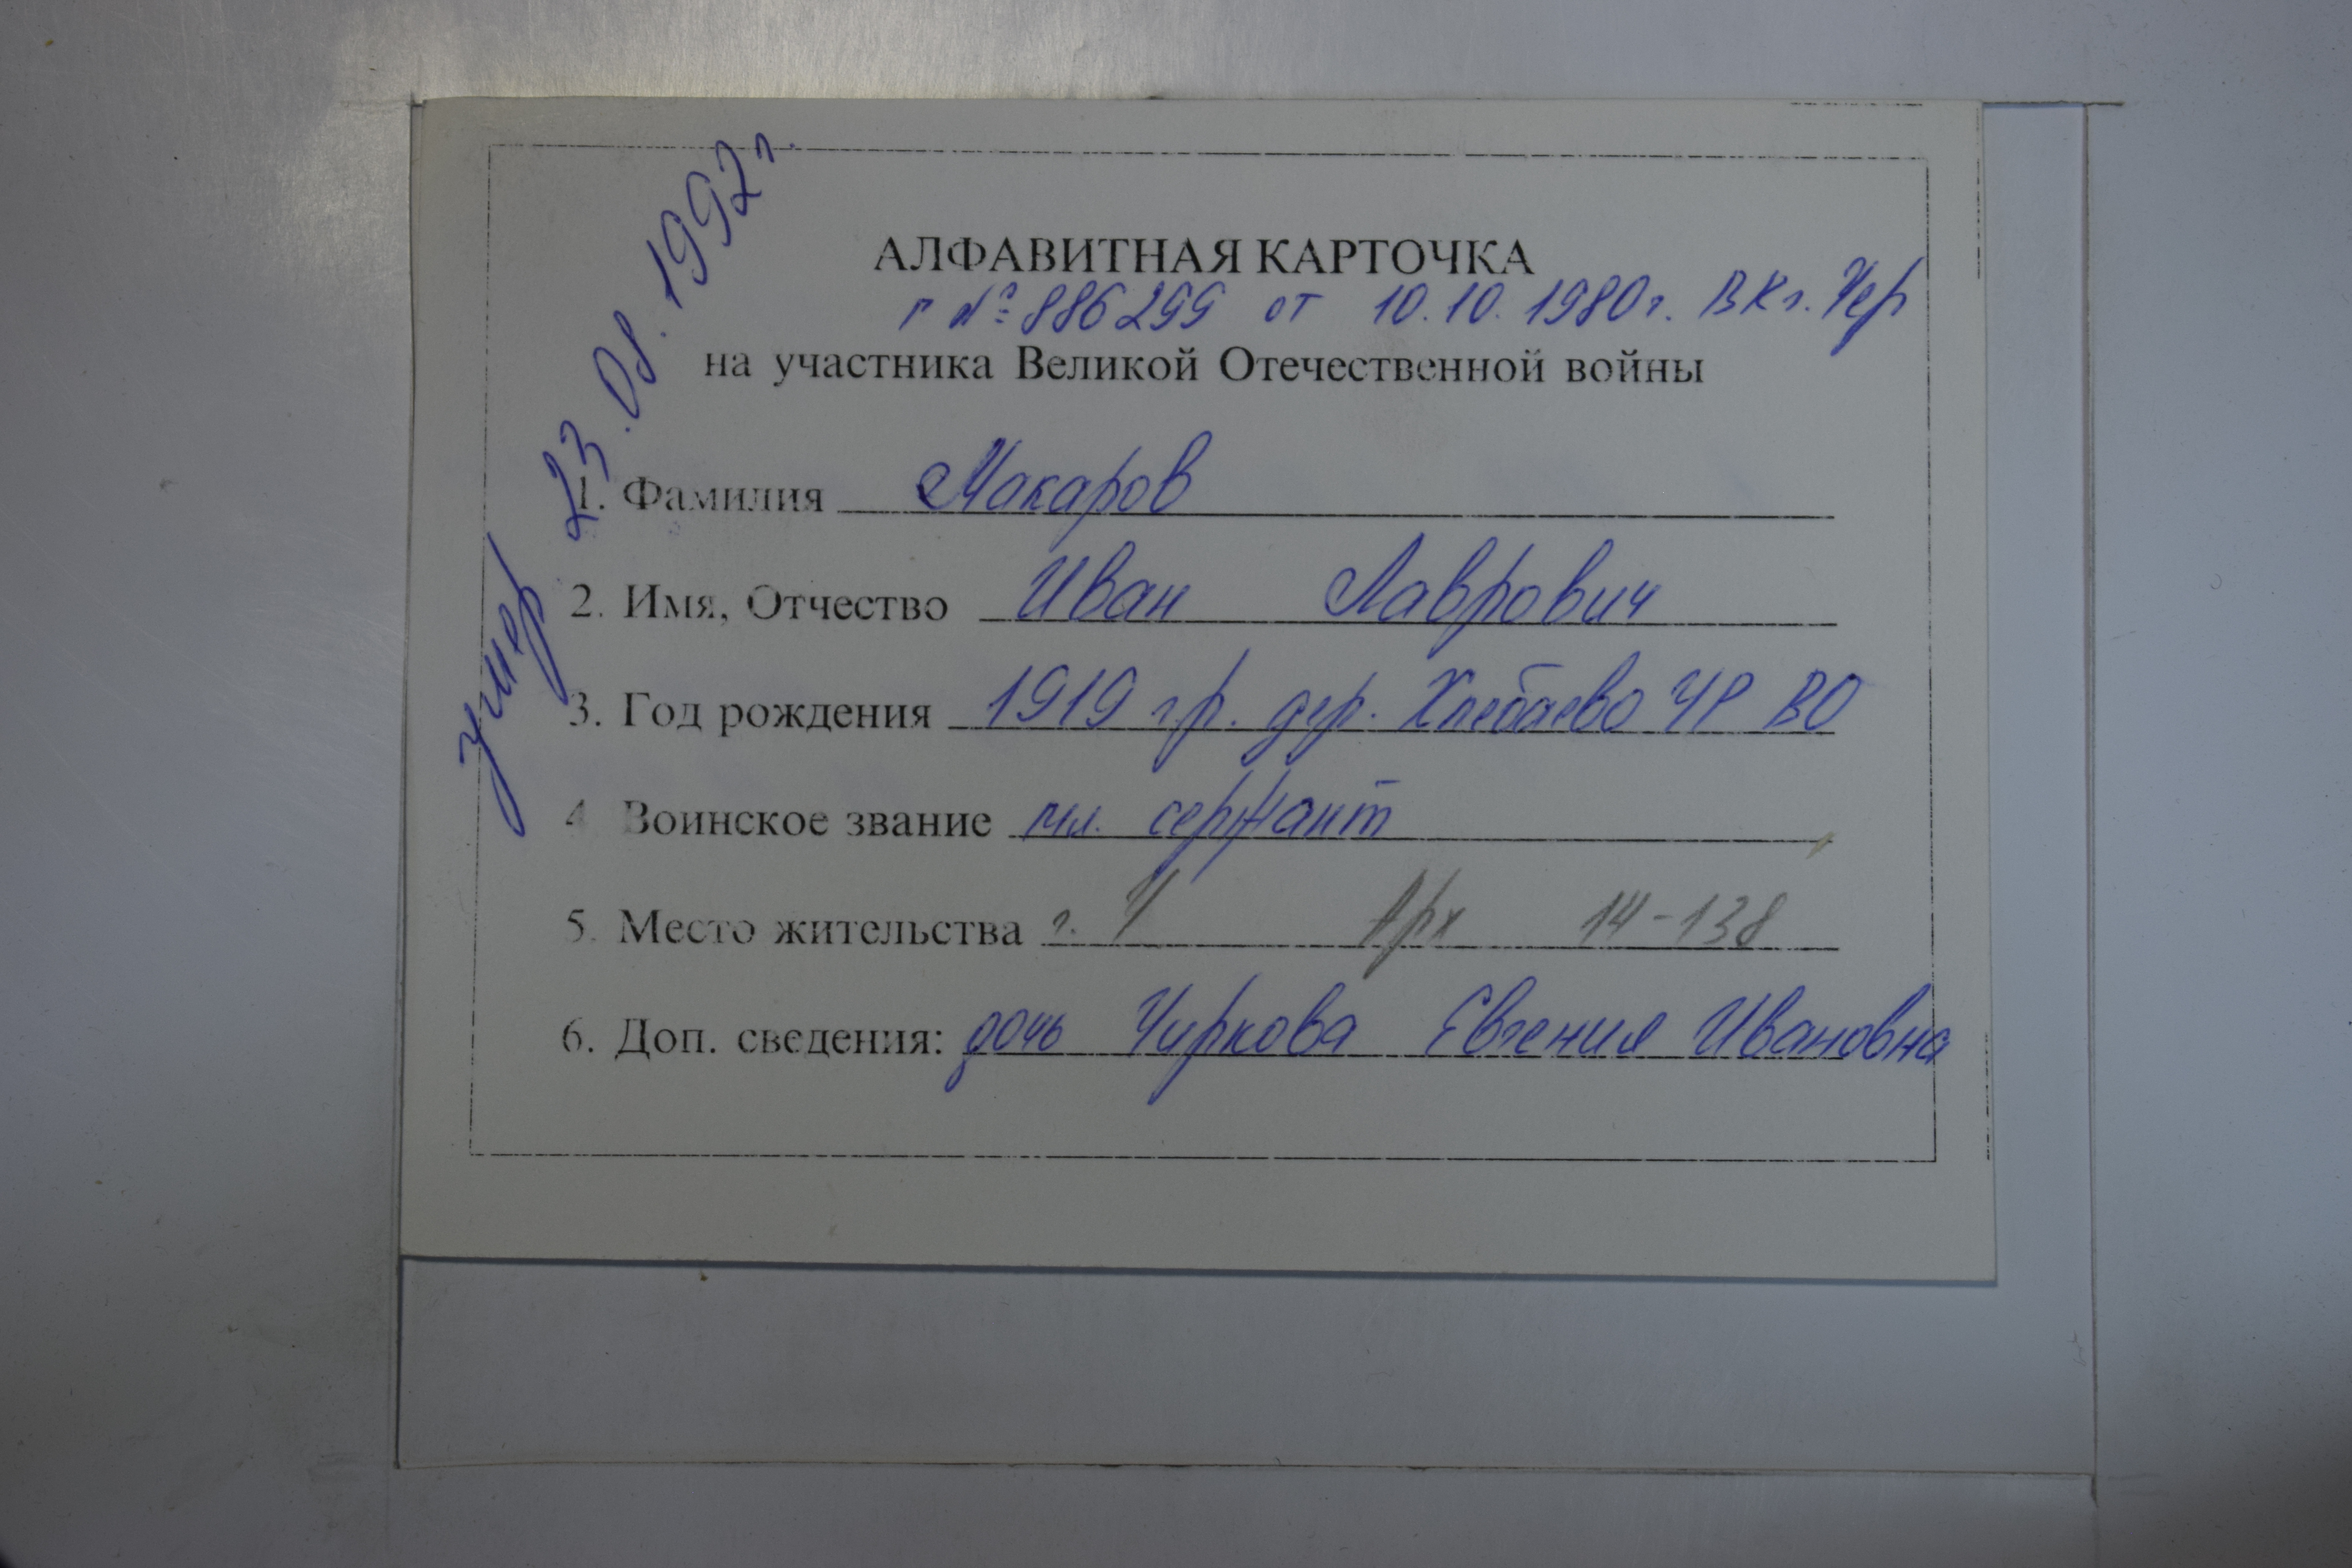 умер 23.08.1992 г.
АЛФАВИТНАЯ КАРТОЧКА
г №886299 от 10.10.1980г. ВК г. Чер
на участника Великой Отечественной войны
1. Фамилия Макаров
2. Имя, Отчество Иван Лаврович
3. Год рождения 1919 гр. дер. Хлебаево ЧР ВО
4 Воинское звание мл. сержант
5. Место жительства г. Ч Арх 14-138
6. Доп. сведения: дочь Чиркова Евгения Ивановна